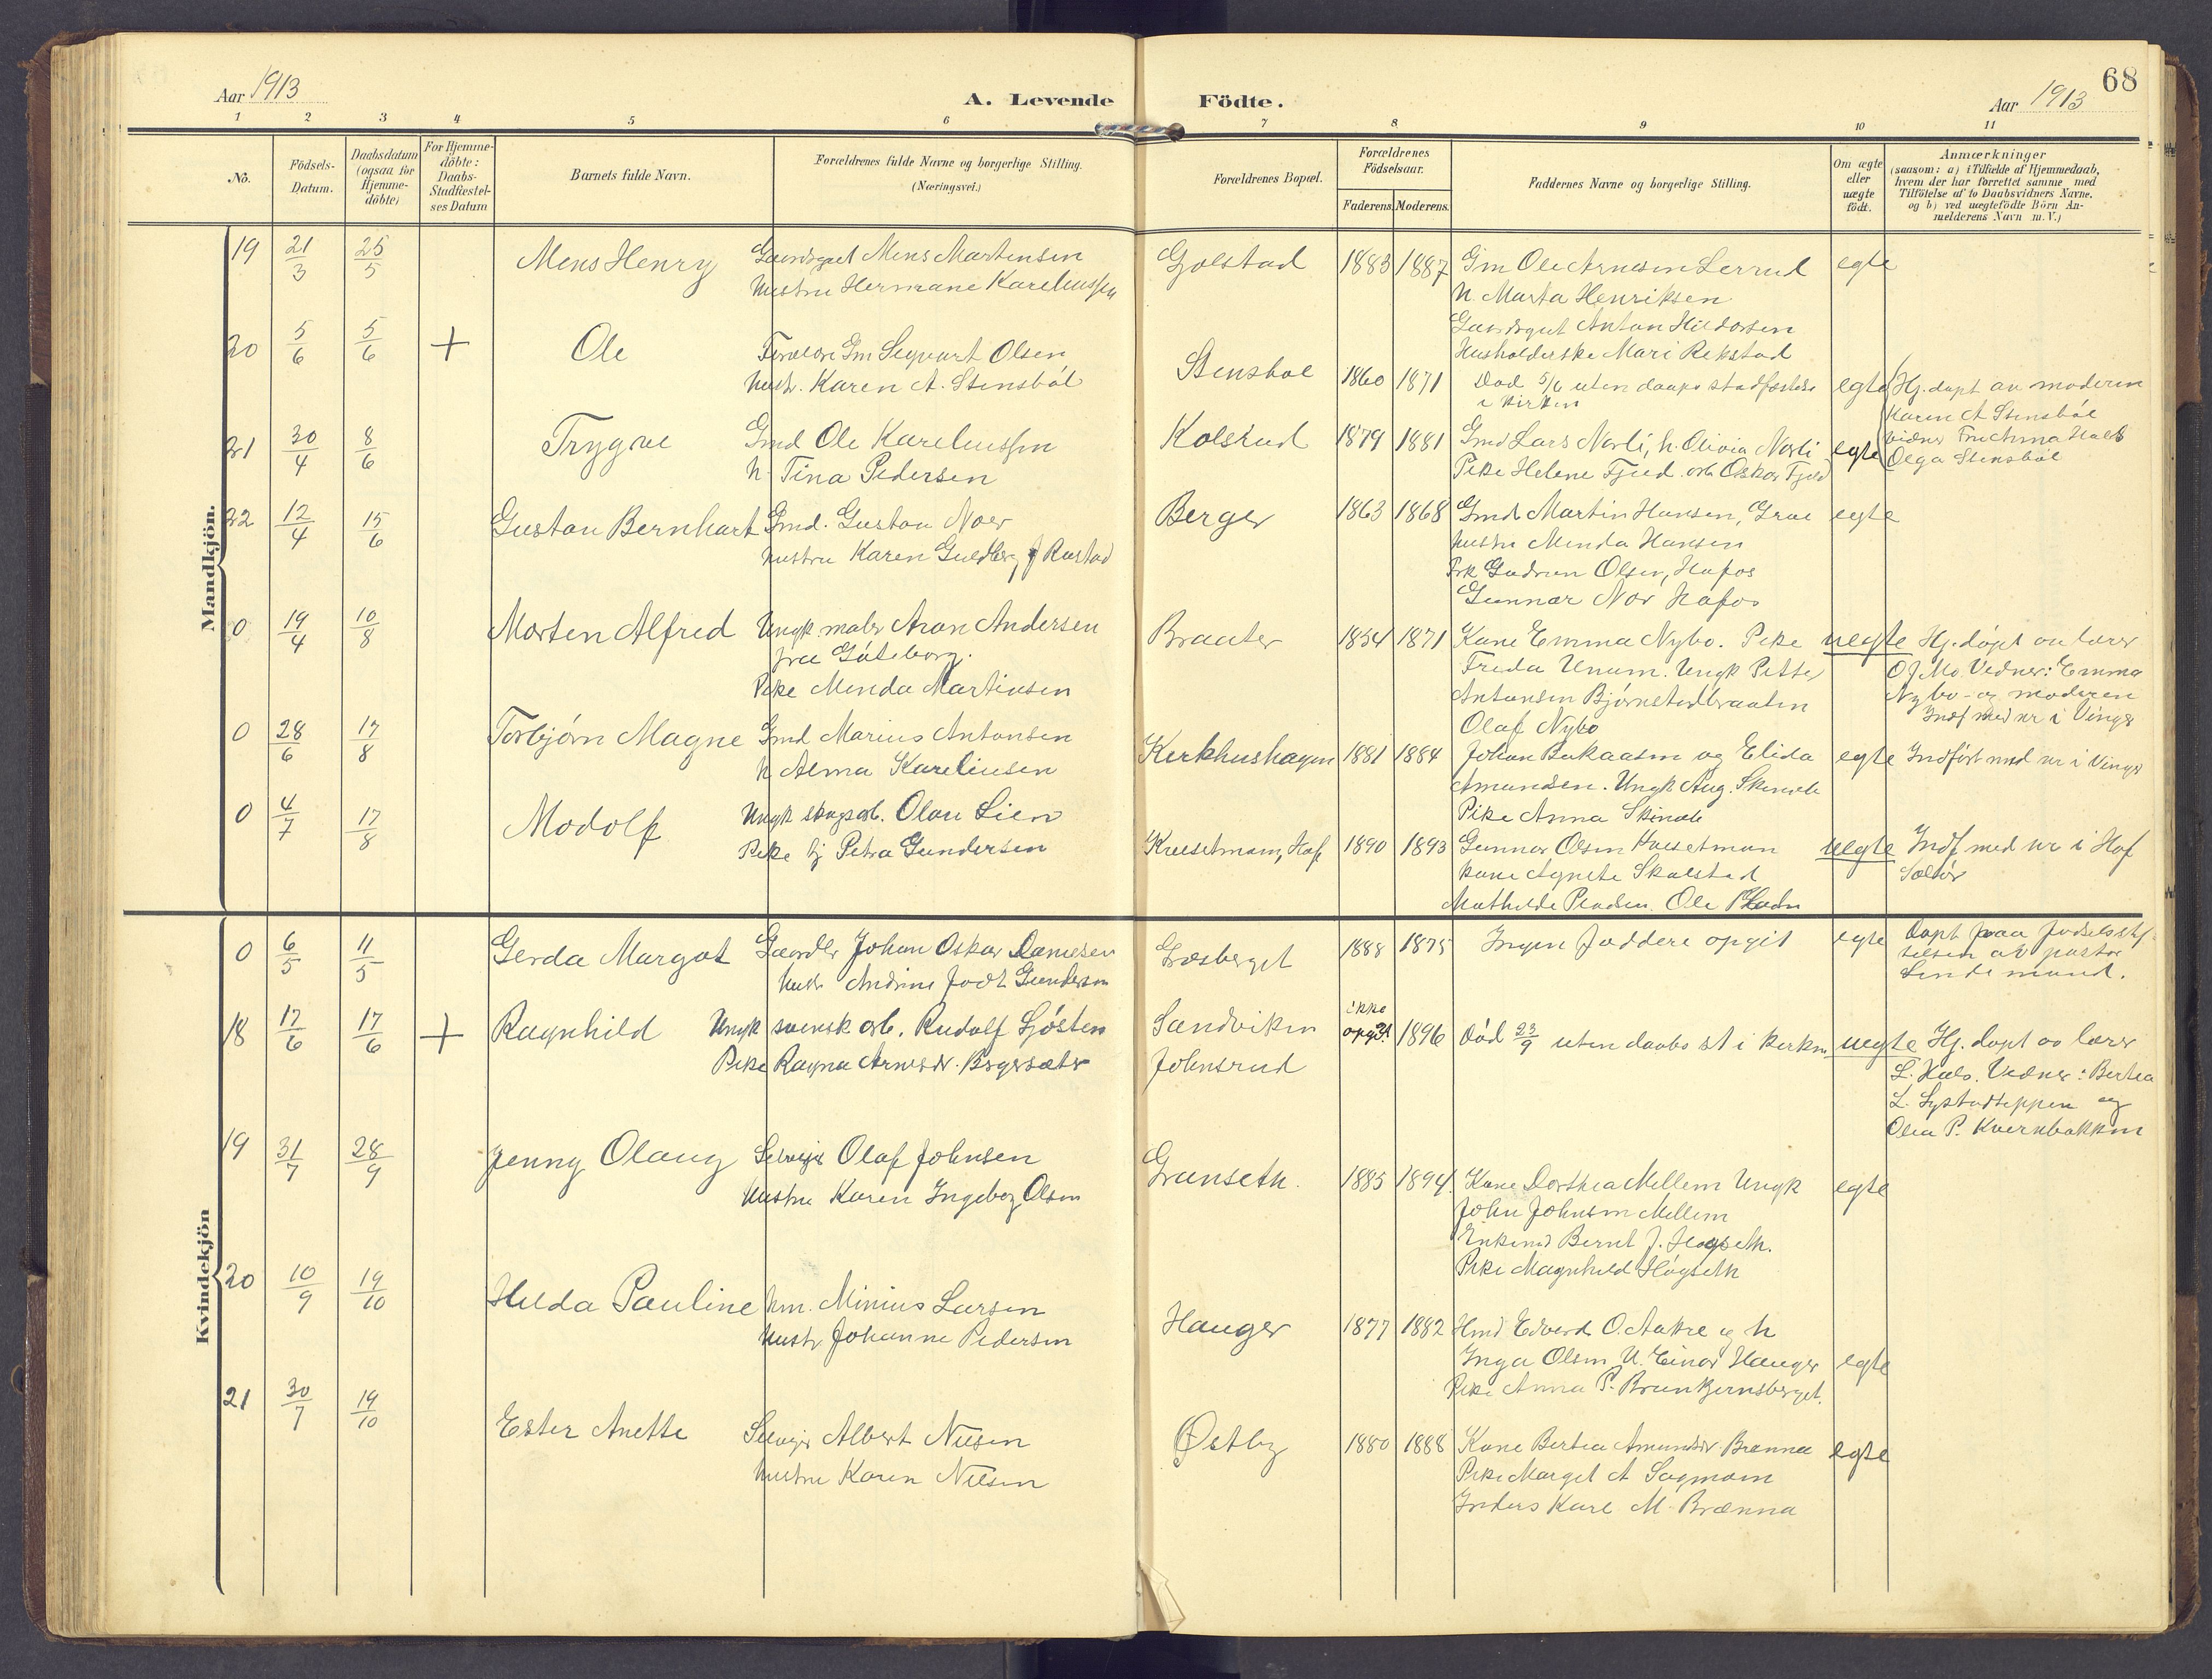 68
Aar 1913
A. Levende Födte.
Aar 1913
1 2 3 4 5 6 7 8 9 10 11
No.
Födsels-
Datum.
Daabsdatum
(ogsaa for
Hjemme-
döbte)
For Hjemme-
döbte:
Daabs-
Stadfæstel-
ses Datum
Barnets fulde Navn.
Forældrenes fulde Navne og borgerlige Stilling.
(Næringsvei.)
Forældrenes Bopæl.
Forældrenes
Födselsaar.
Faderens. Moderens.
Faddernes Navne og borgerlige Stilling.
Om ægte
eller
uægte
födt.
Anmærkninger
(saasom: a) i Tilfælde af Hjemmedaab,
hvem der har forrettet samme med
Tilföielse af to Daabsvidners Navne,
og b) ved uægtefödte Börn An-
melderens Navn m. V.)
Mandkjön.
19 21/3 25/5 Mens Henry Gaardbrut Mens Martensen Golstad 1883 1887 Gm Ole Arnesen Lerrud egte
hustru Hermane Kareliussen
h. Marta Henriksen
Anton Hildorsen
Husholderske Mari Rekstad
20 5/6 5/6 + Ole Gm Segvart Olsen Stensbøl 1860 1871 Død 5/6 uten daaps stadfæstelse egte Hj.døpt av moderen
hustr. Karen A. Stensbøl
i kirken
Karen A Stensbøl
21 30/4 8/6 Trygve Gmd Ole Kareliussen Kolsrud 1879 1881 Gmd Lars Norli, h. Olivia Norli egte
h. Tina Pedersen
Pike Helene Fjeld arb Oskar Fjeld
Olga Stensbøl
22 12/4 15/6 Gustav Bernhart Gmd. Gustav Noer Berger 1863 1868 Gmd Martin Hansen, Grae egte
hustru Karen Guldbrg f Rustad
hustru Minda Hansen
Pik Gudrun Olsen, Hafos
Gunnar Nor Hafos
0 19/4 10/8 Morten Alfred Ungk maler Aron Andersen Braaten 1854 1871 Kone Emma Nybo. Pike uegte Hj.døpt av lærer
fra Göteborg.
Freda Unum. Ungk Petter
O J. Mo. Vidner: Emma
Pike Menda Martinsen
Antonsen Bjørnstadbraaten
Nybo - og moderen
Olaf Nybo
Indf med nr i Vinger
0 28/6 17/8 Torbjørn Magne Gmd Marius Antonsen Kirkhushagen 1881 1884 Johan Bekaasen og Elida egte Indført med nr i Vinger
h Alma Kareliusen
Amundsen. Ungk Aug. Skinale
Pike Anna Skinale
0 4/7 17/8 Modolf Ungk skogsarb. Olav Lien Krusetmoen, Hof 1890 1893 Gunnar Olsen uegte Indf med nr i Hof
Pike tj Petra Gundersen
kone Agnete Skalstad
Solør
Mathilde Pladsen. Ole
Kvindekjön
0 6/5 11/5 Gerda Margot Gaardbr Johan Oskar Danielsen Græsberget 1888 1875 Ingen faddere opgit egte Døpt paa fødselsstif
hustr Andrine født Gunderson
telsen av pastor
Lindemand.
18 17/6 17/6 + Ragnhild Ungk svensk arb. Rudolf Sjösten Sandviken ikke opgit 1896 Død 23/9 uten daabs st i kirken uegte Hj.døpt av lærer
Pike Ragna Arnesdr. Børgersæter Johnsrud
L. Hals. Vidner: Bertea
L. Lystadteppen og
Olea P. Kvernbakken
19 31/7 28/9 Jenny Olaug Selveier Olaf Johnsen Granseth. 1885 1894 Kone Dorthea Mellem Ungk egte
hustru Karen Ingeborg Olsen
John Johnsen Mellem
Enkemd Bernt J. Høgseth.
Pike Magnhild Høgseth
20 10/9 19/10 Hilda Pauline hm. Minius Larsen Hauger 1877 1882 Hmd Edvard O. Aakre og h
hustr Johanne Pedersen
Inga Olsen U. Einar Hauger egte
Pike Anna P. Bruntjernsberget.
21 30/7 19/10 Ester Anette Selveier Albert Nilsen Østby 1880 1888 Kone Bertea Amundsdr. Brænna egte
hustru Karen Nilsen
Pike Marget A Sagmoen
Inders Karl M. Brænna